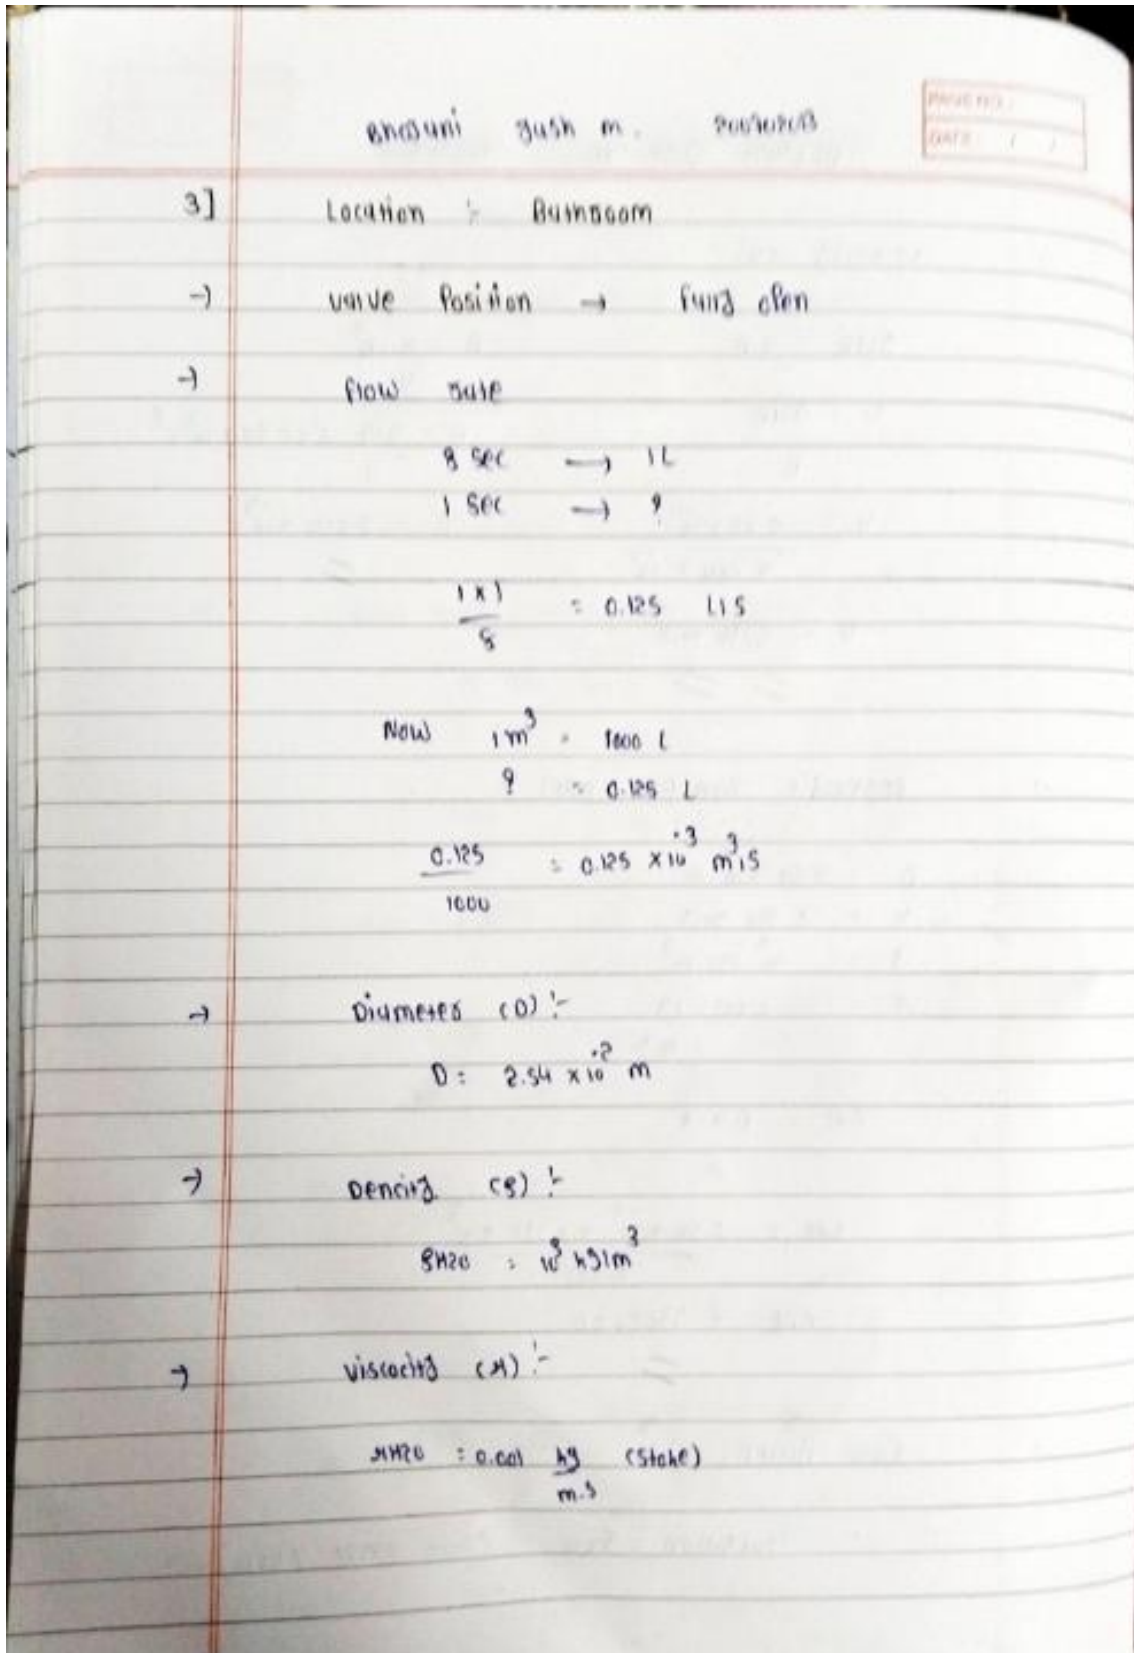 PAGE NO.:
DATE: / /
3] Location :- Bathroom
→ valve Position → fully open
→ flow rate
8 sec → 1L
1 sec → ?
1 x 1 / 8 = 0.125 L/S
Now 1 m³ = 1000 L
? = 0.125 L
0.125 / 1000 = 0.125 x 10⁻³ m³/S
→ Diameter (D) :-
D = 2.54 x 10⁻² m
→ Dencity (ρ) :-
ρH2O = 10³ kg/m³
→ viscocity (μ) :-
μH2O = 0.001 kg / m.s (Stoke)